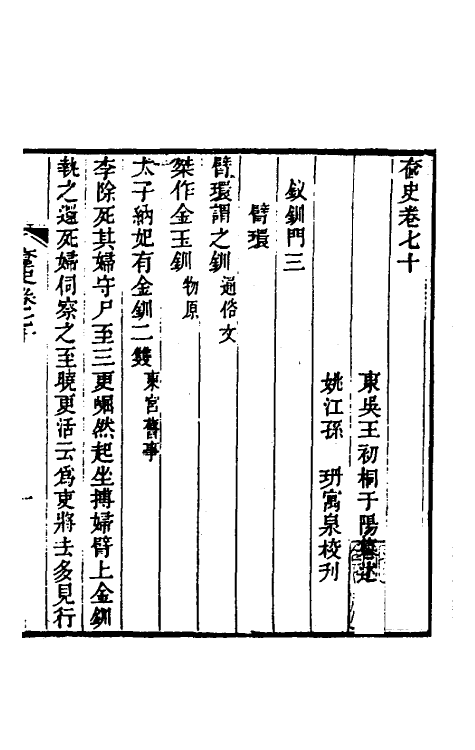 奩史卷七十
東吳王初桐于陽纂述
姚江孫 玥寓泉校刊
釵釧門三
臂環
臂環謂之釧 通俗文
桀作金玉釧 物原
太子納妃有金釧二雙 東宮舊事
李除死其婦守尸至三更崛然起坐搏婦臂上金釧
執之還死婦伺察之至曉更活云為吏將去多見行